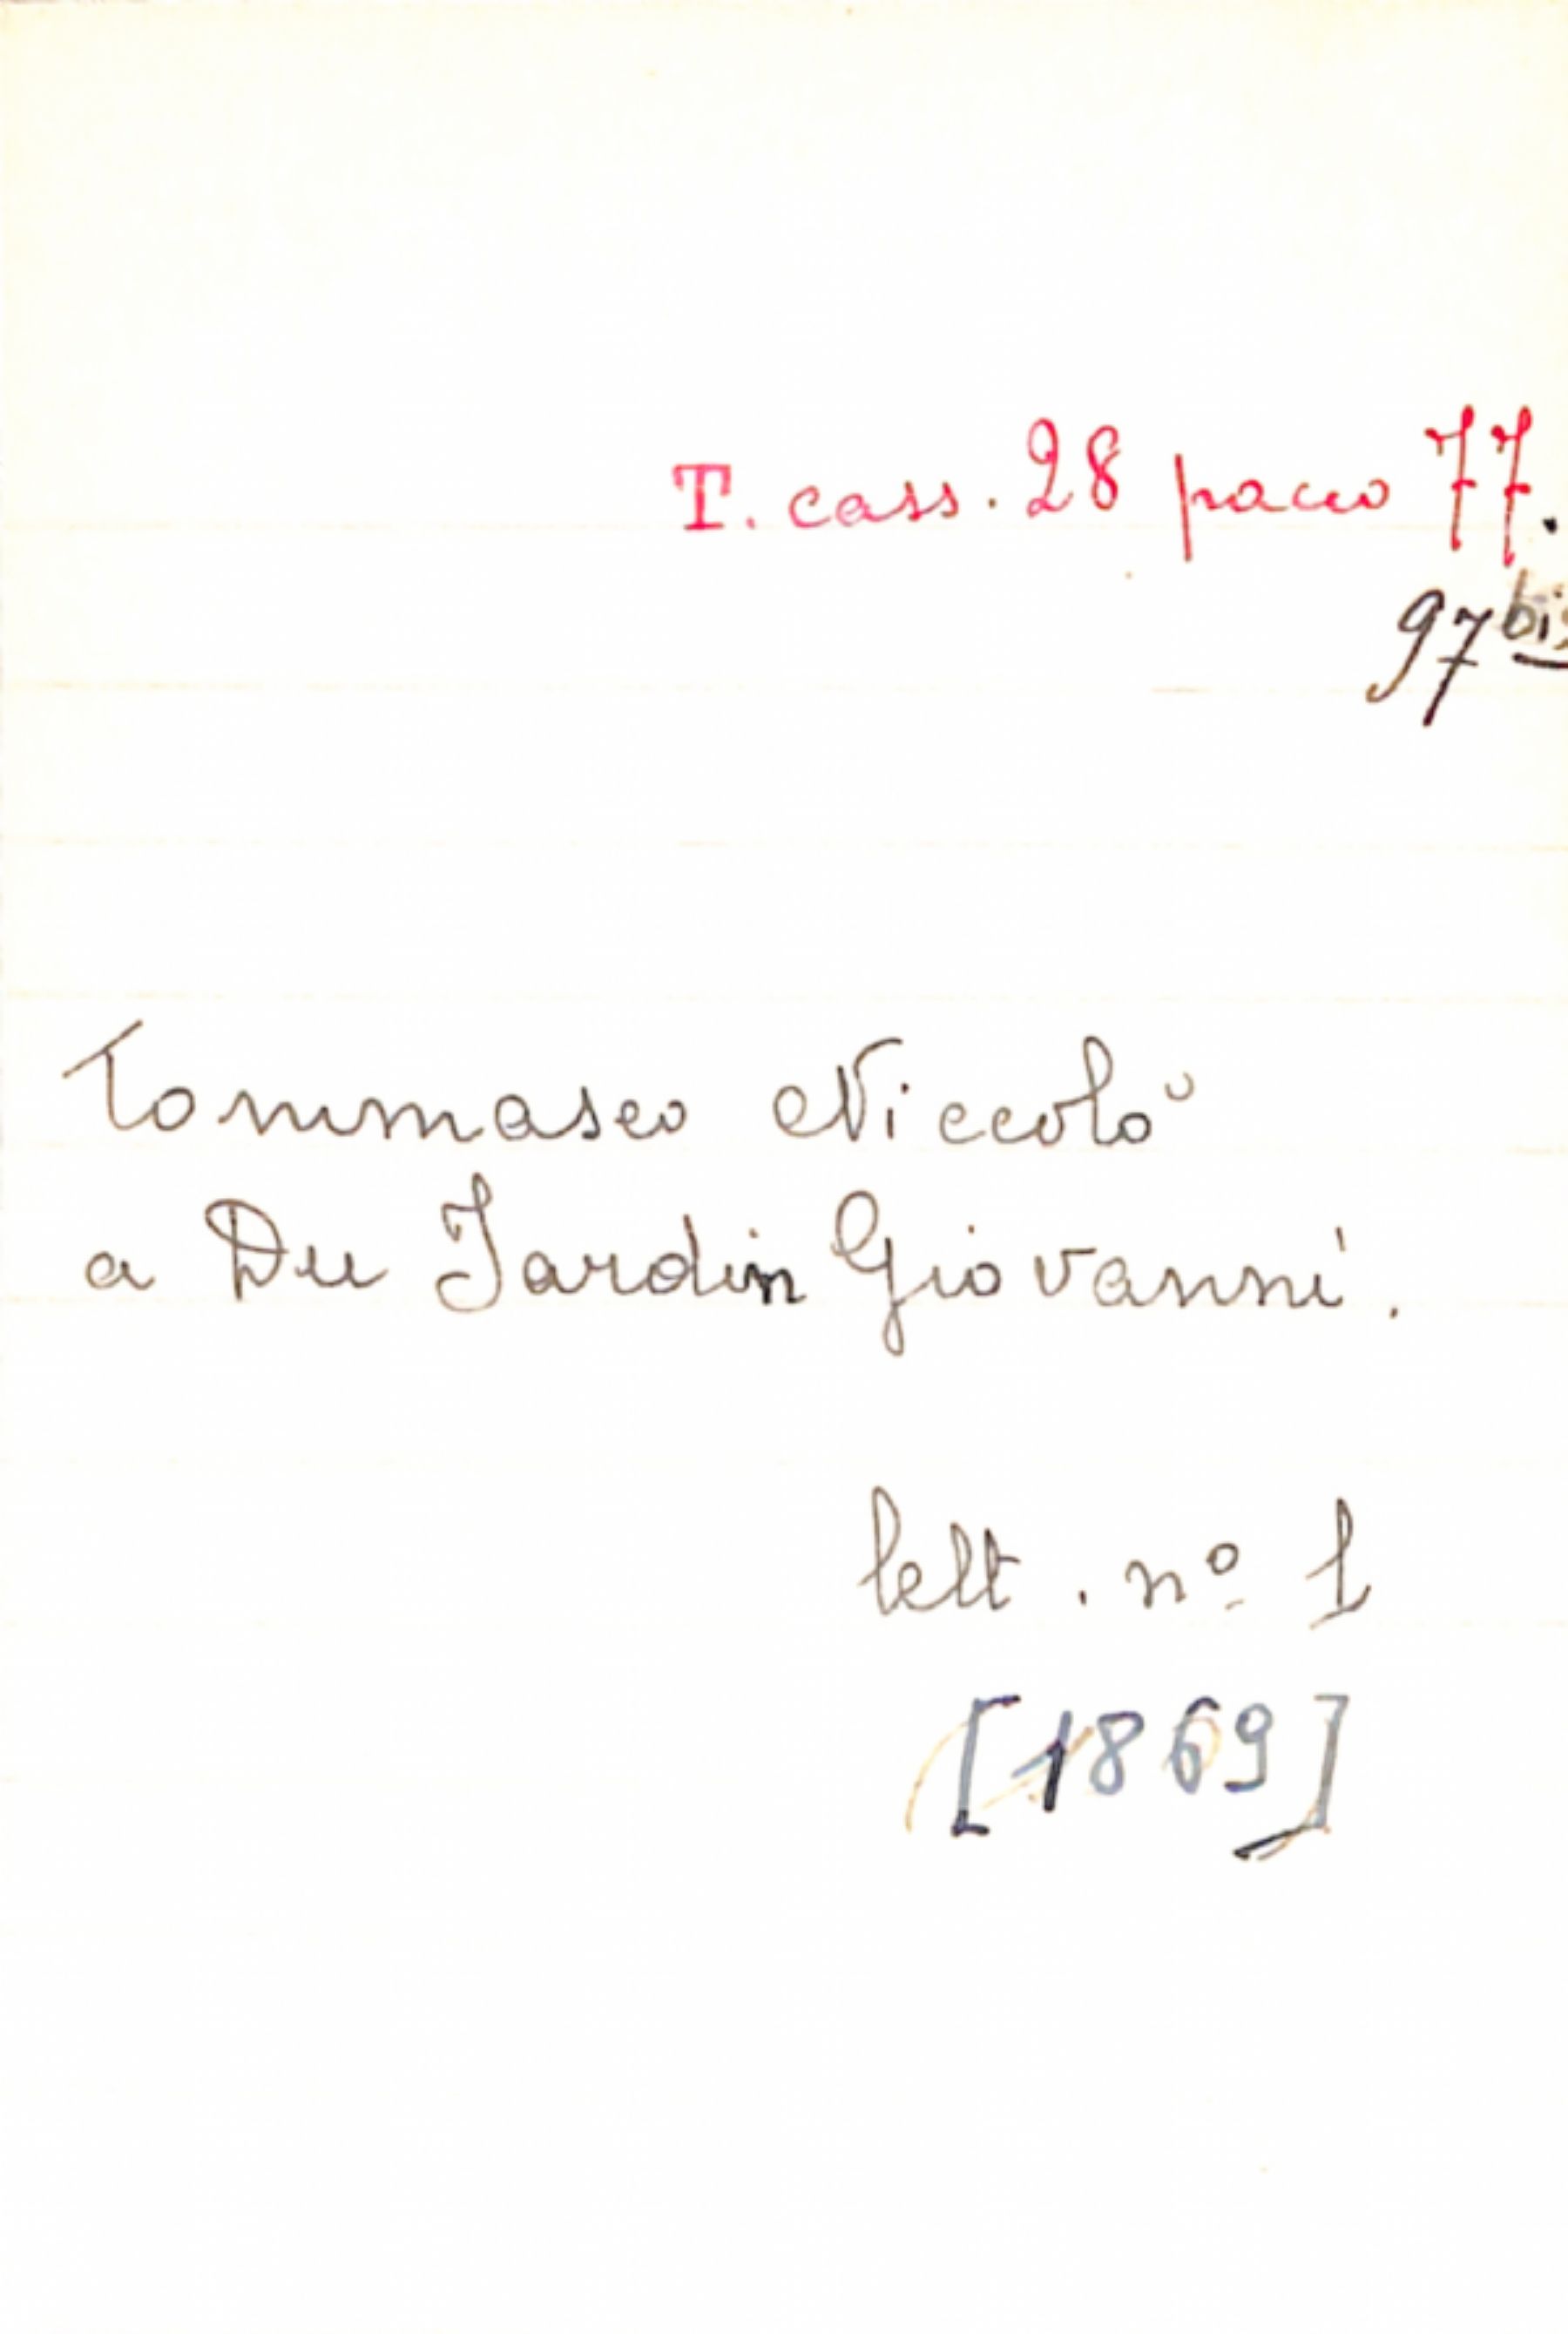 T. cass. 28 pacco 77.
97 bis
Tommaseo Niccolò
a Du Jardin Giovanni.
lett. nº 1
[1869]